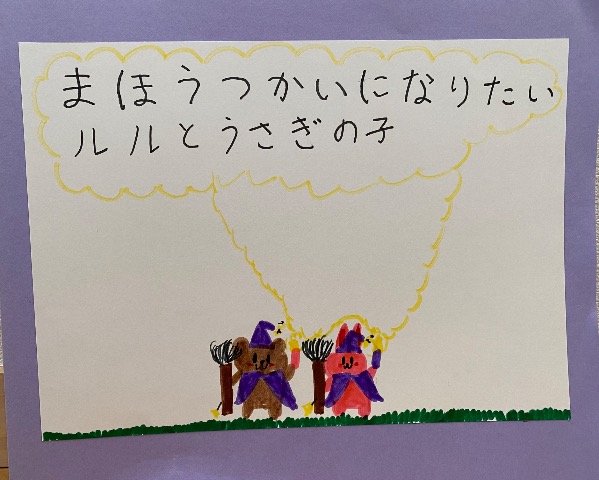 まほうつかいになりたい
ルルとうさぎの子